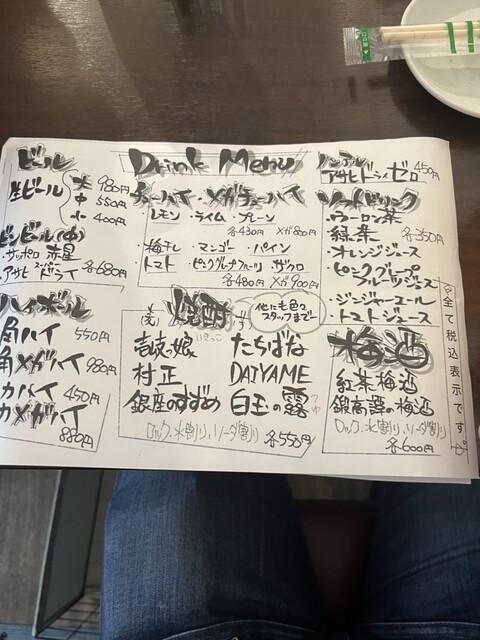 Drink Menu
ビール
生ビール
大 980円
中 550円
小 400円
ビンビール(中)
・サッポロ 赤星
・アサヒ スーパードライ
各680円
ハイボール
角ハイ 550円
角メガハイ 980円
カハイ 450円
カメガハイ
880円
チューハイ・メガチューハイ
・レモン ・ライム ・プレーン
各430円 メガ800円
・梅干し ・マンゴー ・パイン
・トマト ・ピンクグレープフルーツ ・ザクロ
各480円 メガ900円
焼酎
他にも色々
スタッフまで
(麦)
壱岐の娘
村正
銀座のすずめ
(芋)
たちばな
DAIYAME
白玉の露
つゆ
ロック、水割り、ソーダ割り
各550円
ノンアル
アサヒ ドライゼロ 450円
ソフトドリンク
・ウーロン茶
・緑茶
各350円
・オレンジジュース
・ピンクグレープ
フルーツジュース
・ジンジャーエール
・トマトジュース
梅酒
紅茶梅酒
鍛高譚の梅酒
ロック、水割り、ソーダ割り
各600円
全て税込表示です。